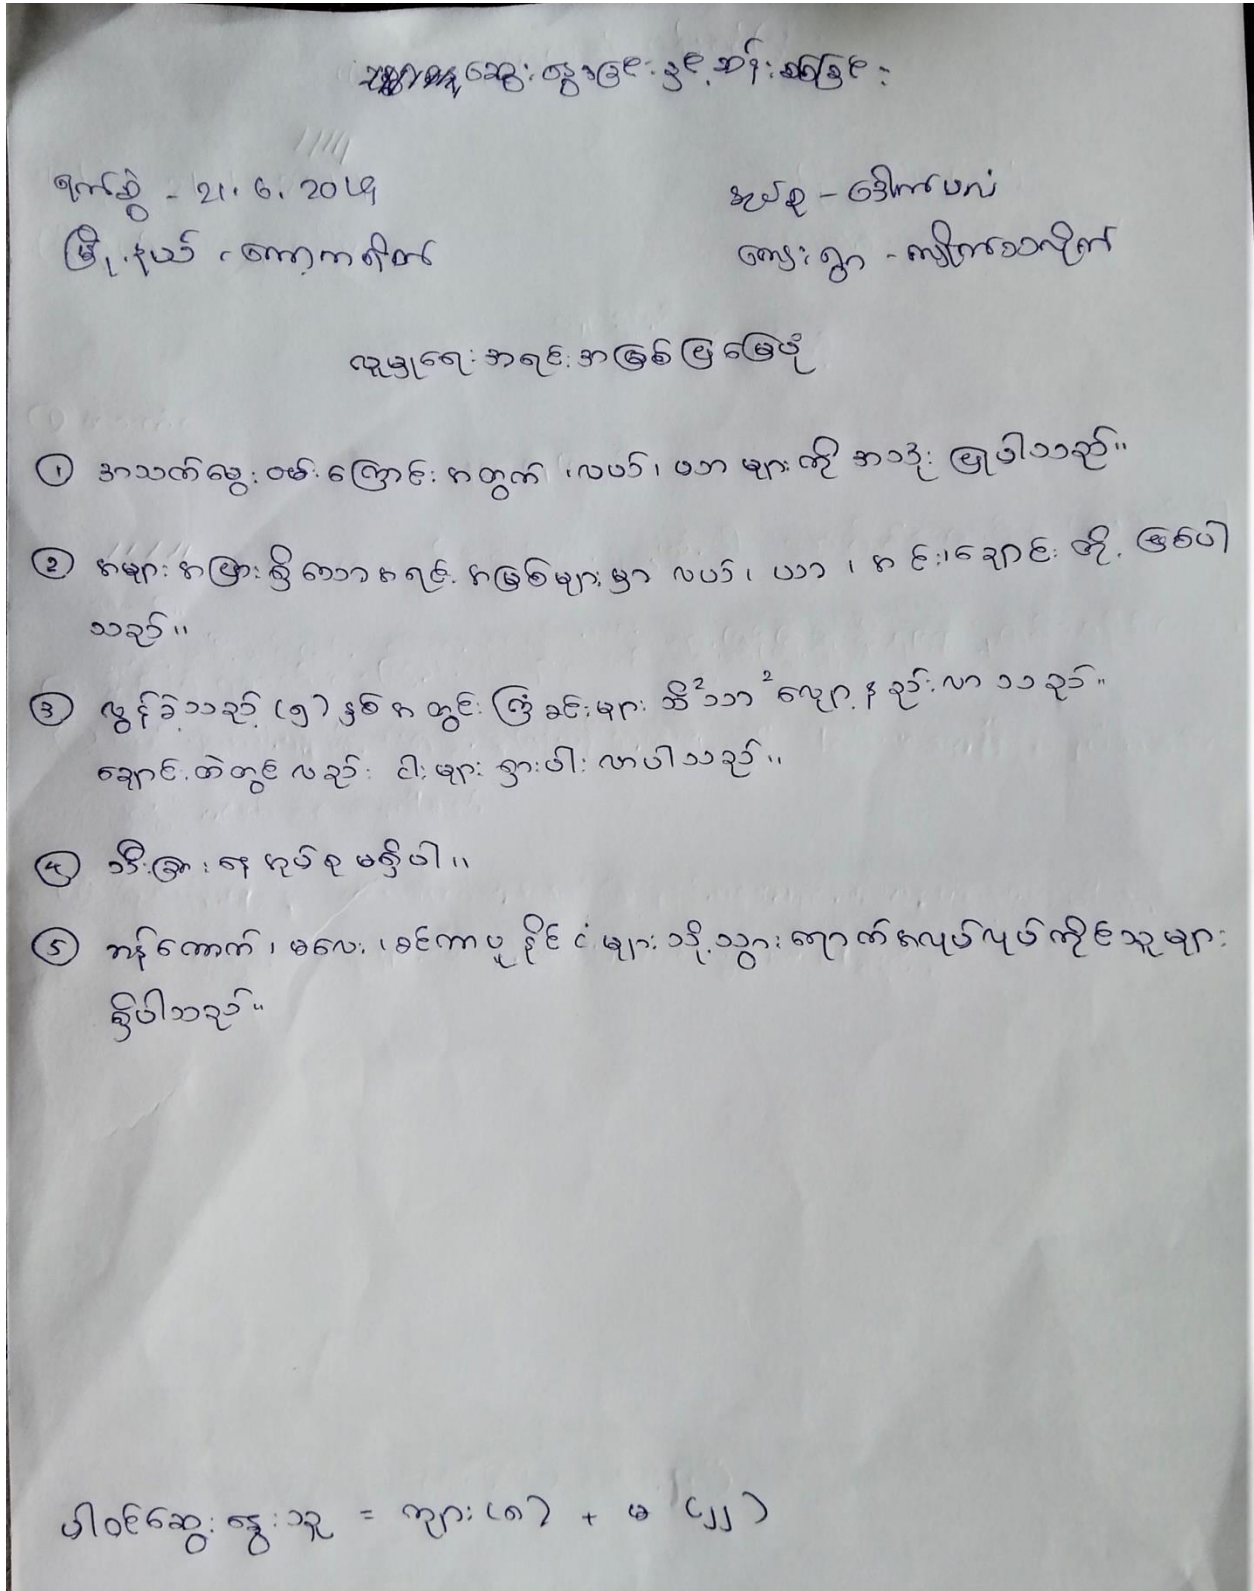 ဆွေးနွေးခြင်းနှင့် ဆန်းစစ်ခြင်း
ရက်စွဲ - 21.6.2019
အုပ်စု - ဒေါက်ပလံ
မြို့နယ် - ကော့ကရိတ်
ကျေးရွာ - ကျိုက်သလိုက်
လူမှုရေးအရင်းအမြစ်ပြမြေပုံ
① အသက်မွေးဝမ်းကြောင်းအတွက် ၊လယ်၊ ယာများကို အသုံးပြုပါသည်။
② အများအပြားရှိသောအရင်းအမြစ်များမှာ လယ်၊ ယာ ၊ အင်း၊ချောင်းတို့ ဖြစ်ပါ
သည်။
③ လွန်ခဲ့သည့် (၅) နှစ်အတွင်း ခြံခင်းများ သိ²သာ² လျော့နည်းလာသည်။
ချောင်းထဲတွင်လည်း ငါးများ ရှားပါးလာပါသည်။
④ သီးခြားနေအုပ်စုမရှိပါ။
⑤ ဘန်ကောက်၊ မလေး၊ စင်ကာပူနိုင်ငံများသို့သွားရောက်အလုပ်လုပ်ကိုင်သူများ
ရှိပါသည်။
ပါဝင်ဆွေးနွေးသူ = ကျား (၈) + မ (၂၂)